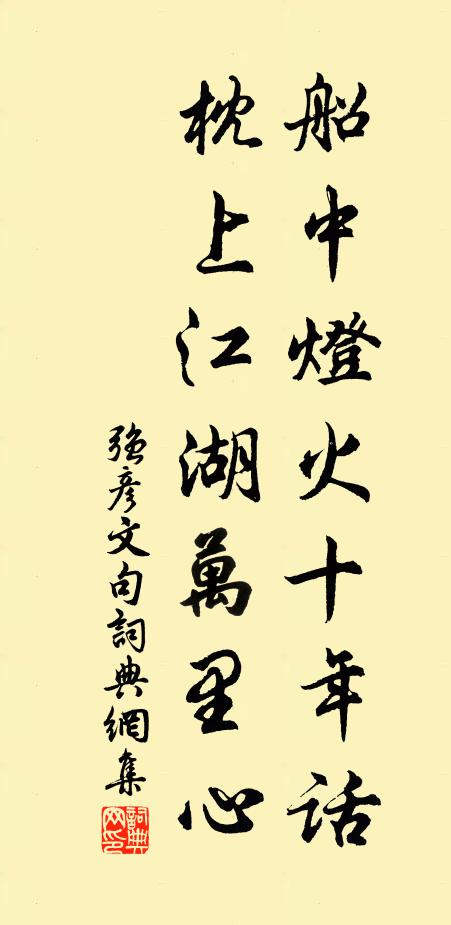 船中燈火十年話
枕上江湖萬里心
強彥文句詞典網集
詞典網印